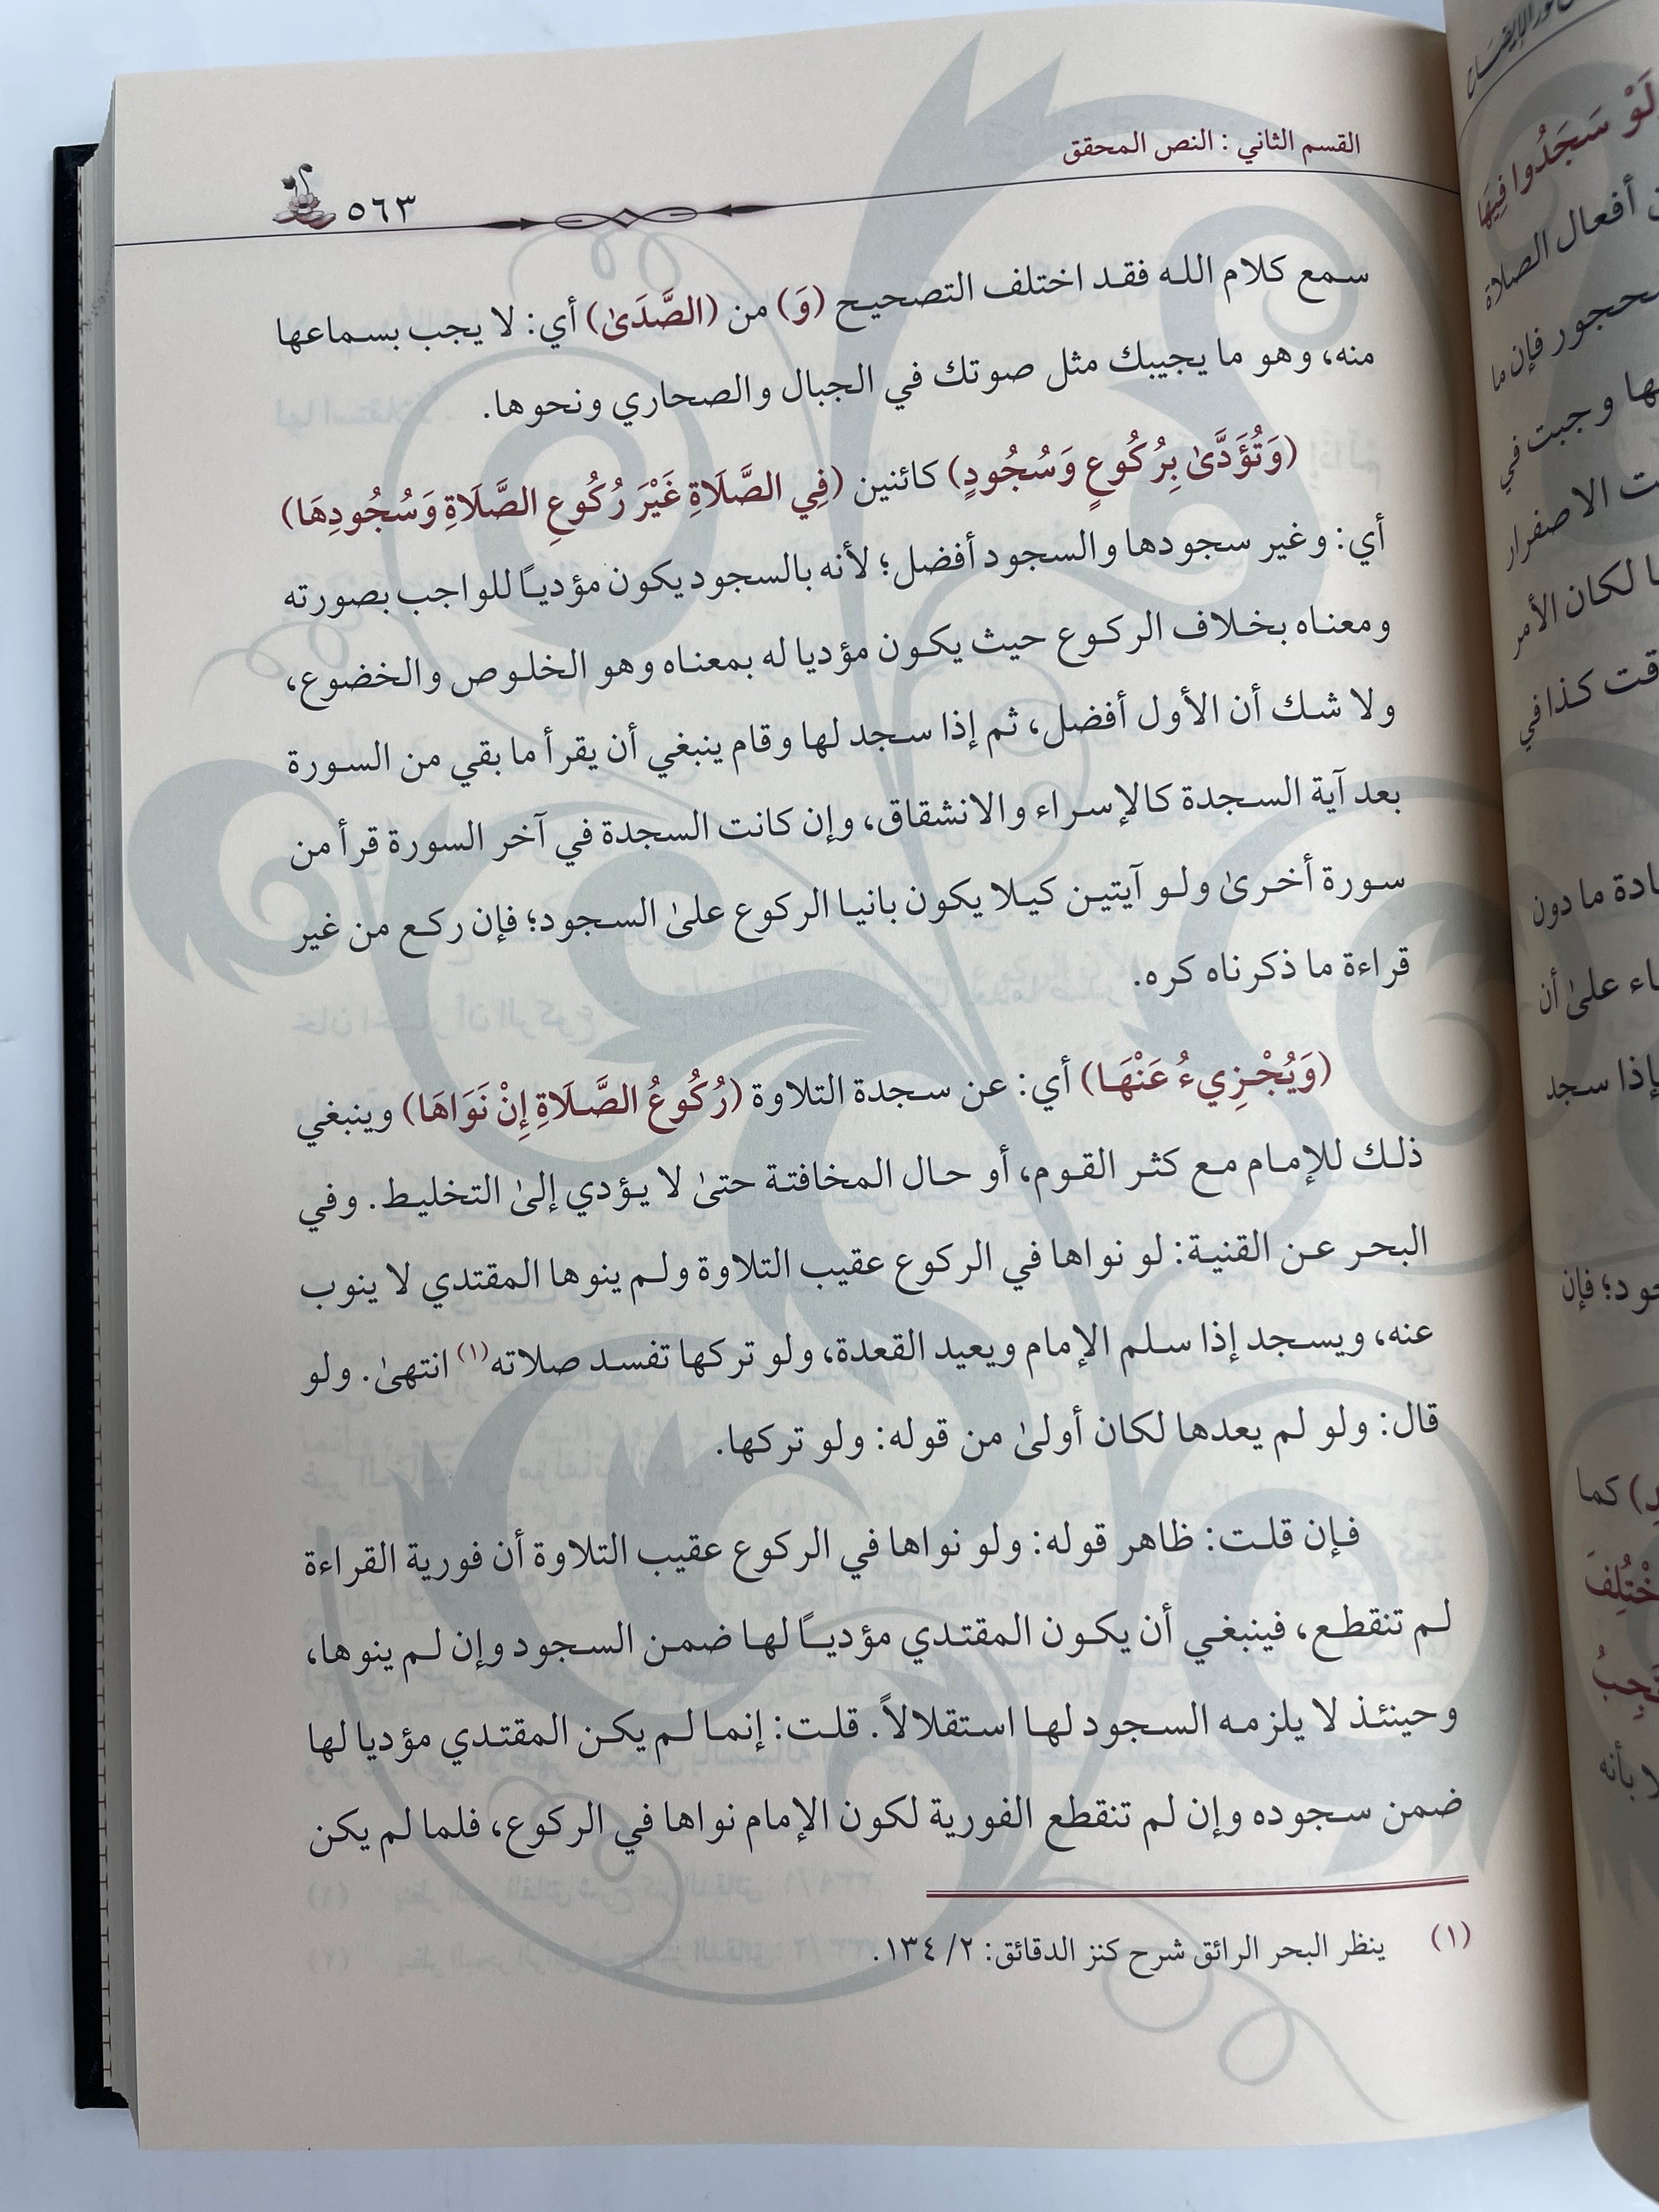 القسم الثاني : النص المحقق
٥٦٣
سمع كلام الله فقد اختلف التصحيح (وَ) من (الصَّدَىٰ) أي: لا يجب بسماعها
منه، وهو ما يجيبك مثل صوتك في الجبال والصحاري ونحوها.
(وَتُؤَدَّىٰ بِرُكُوعٍ وَسُجُودٍ) كائنين (فِي الصَّلَاةِ غَيْرَ رُكُوعِ الصَّلَاةِ وَسُجُودِهَا)
أي: وغير سجودها والسجود أفضل؛ لأنه بالسجود يكون مؤدياً للواجب بصورته
ومعناه بخلاف الركوع حيث يكون مؤديا له بمعناه وهو الخلوص والخضوع،
ولا شك أن الأول أفضل، ثم إذا سجد لها وقام ينبغي أن يقرأ ما بقي من السورة
بعد آية السجدة كالإسراء والانشقاق، وإن كانت السجدة في آخر السورة قرأ من
سورة أخرىٰ ولو آيتين كيلا يكون بانيا الركوع علىٰ السجود؛ فإن ركع من غير
قراءة ما ذكرناه كره.
(وَيُجْزِيءُ عَنْهَا) أي: عن سجدة التلاوة (رُكُوعُ الصَّلَاةِ إِنْ نَوَاهَا) وينبغي
ذلك للإمام مع كثر القوم، أو حال المخافتة حتىٰ لا يؤدي إلىٰ التخليط. وفي
البحر عن القنية: لو نواها في الركوع عقيب التلاوة ولم ينوها المقتدي لا ينوب
عنه، ويسجد إذا سلم الإمام ويعيد القعدة، ولو تركها تفسد صلاته(١) انتهىٰ. ولو
قال: ولو لم يعدها لكان أولىٰ من قوله: ولو تركها.
فإن قلت: ظاهر قوله: ولو نواها في الركوع عقيب التلاوة أن فورية القراءة
لم تنقطع، فينبغي أن يكون المقتدي مؤدياً لها ضمن السجود وإن لم ينوها،
وحينئذ لا يلزمه السجود لها استقلالاً. قلت: إنما لم يكن المقتدي مؤديا لها
ضمن سجوده وإن لم تنقطع الفورية لكون الإمام نواها في الركوع، فلما لم يكن
(١) ينظر البحر الرائق شرح كنز الدقائق: ٢/ ١٣٤.
لَوْ سَجَدُوا فِيهَا
أفعال الصلاة
محجور فإن ما
وجبت في
الاصفرار
لكان الأمر
كذا في
ما دون
علىٰ أن
إذا سجد
فإن
كما
بأنه